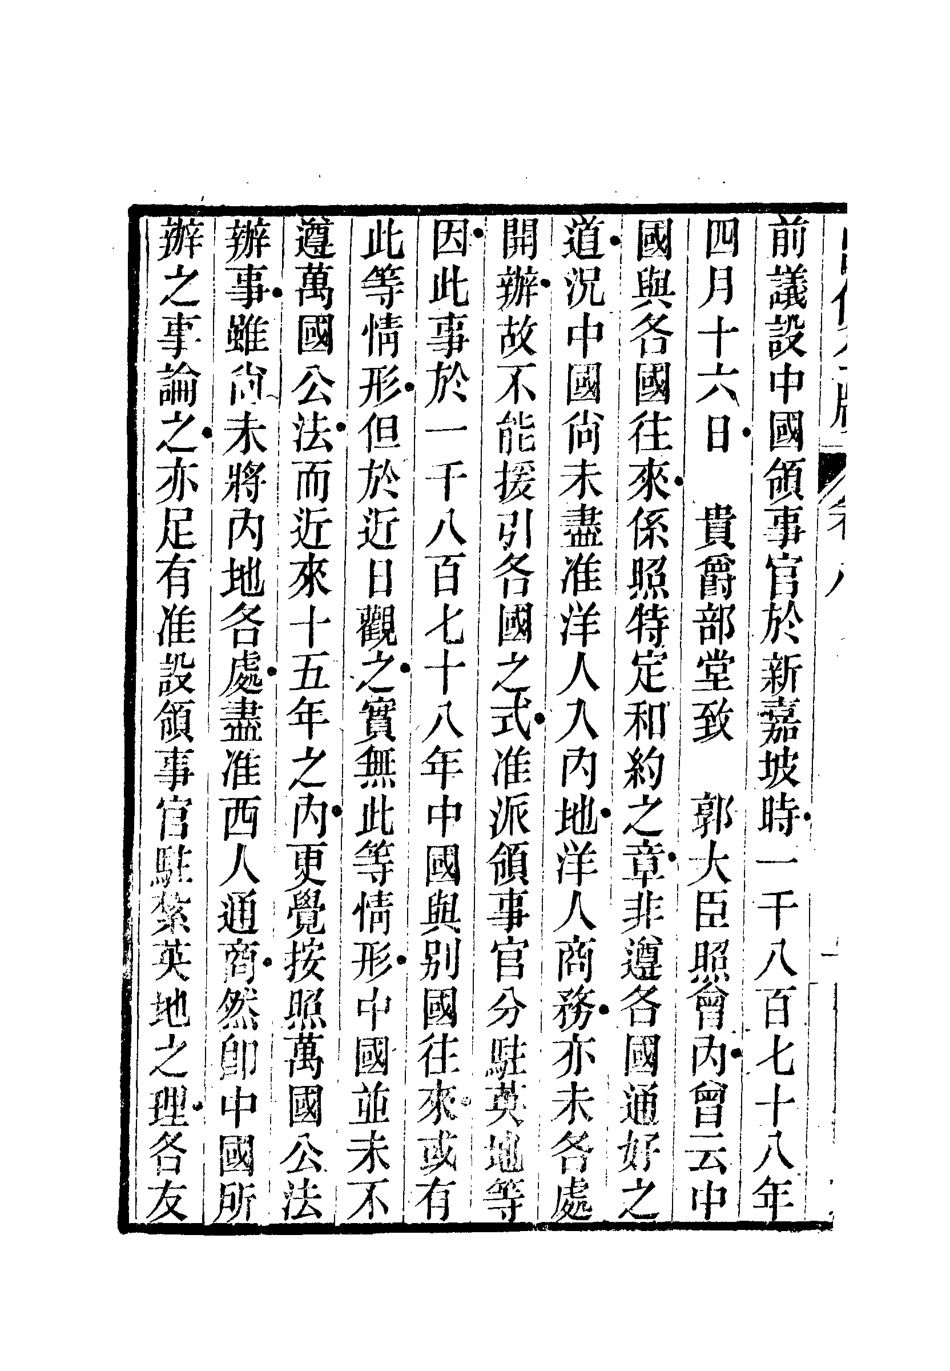 卷八
前議設中國領事官於新嘉坡時一千八百七十八年
四月十六日 貴爵部堂致 郭大臣照會內曾云中
國與各國往來係照特定和約之章非遵各國通好之
道況中國尙未盡准洋人入內地洋人商務亦未各處
開辦故不能援引各國之式准派領事官分駐英地等
因此事於一千八百七十八年中國與別國往來或有
此等情形但於近日觀之實無此等情形中國並未不
遵萬國公法而近來十五年之內更覺按照萬國公法
辦事雖尙未將內地各處盡准西人通商然卽中國所
辦之事論之亦足有准設領事官駐紮英地之理各友